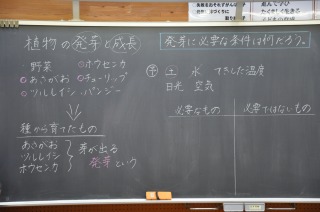 植物の発芽と成長
・野菜 ◎ホウセンカ
◎あさがお ◎チューリップ
◎ツルレイシ ・パンジー
種から育てたもの
あさがお
ツルレイシ
ホウセンカ
芽が出る
発芽という
発芽に必要な条件は何だろう。
予 土 水 てきした温度
日光 空気
必要なもの 必要ではないもの